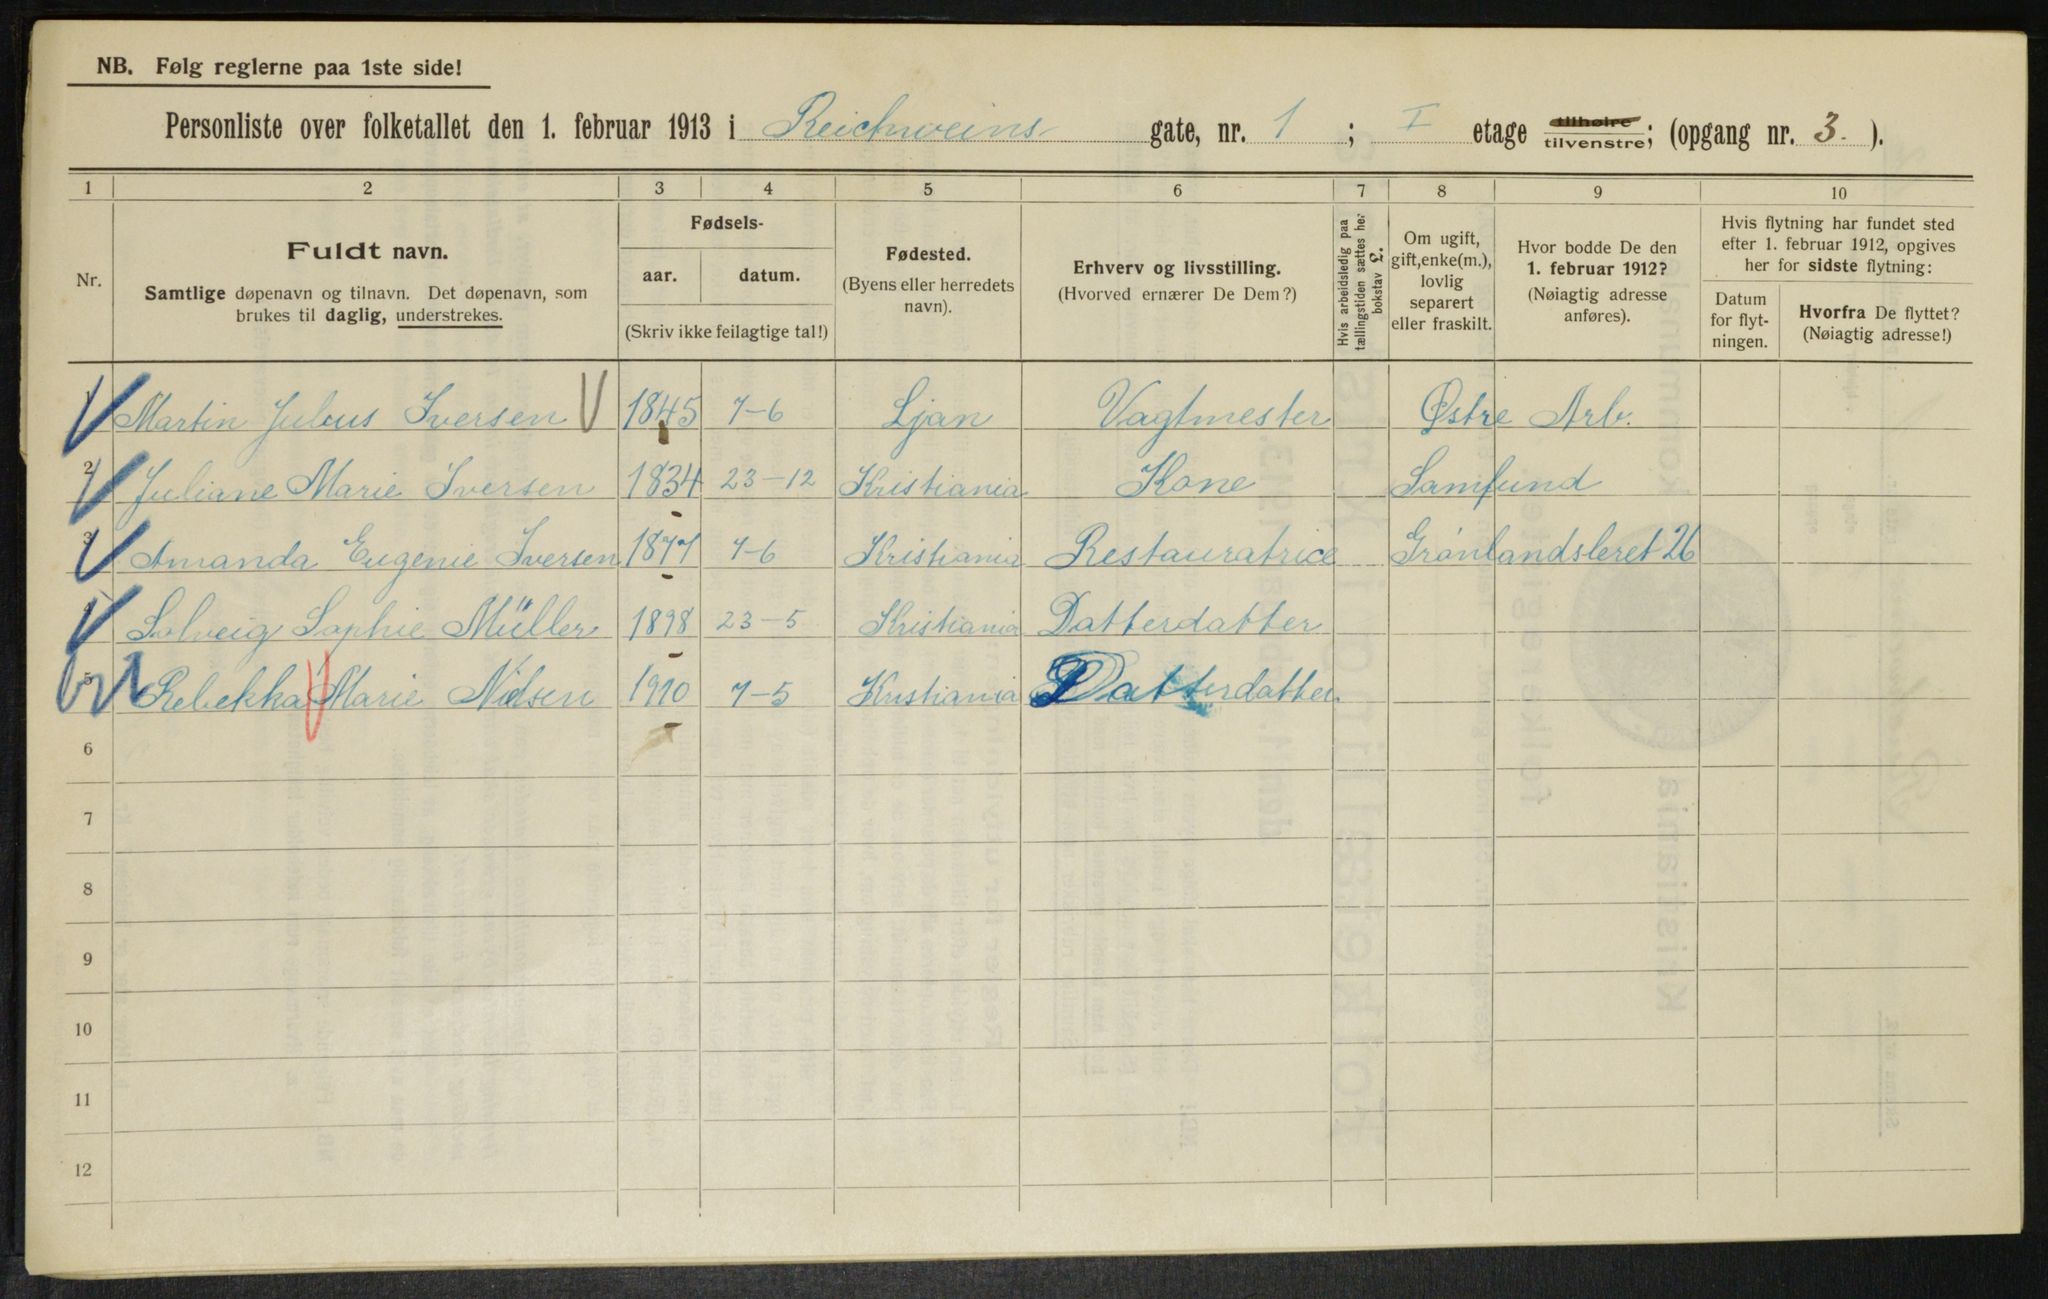 NB. Følg reglerne paa 1ste side!
Personliste over folketallet den 1. februar 1913 i Reichweins- gate, nr. 1 ; I etage tilhøire tilvenstre; (opgang nr. 3. ).
1 2 3 4 5 6 7 8 9 10
Nr.
Fuldt navn.
Samtlige døpenavn og tilnavn. Det døpenavn, som
brukes til daglig, understrekes.
Fødsels-
aar. datum.
(Skriv ikke feilagtige tal!)
Fødested.
(Byens eller herredets
navn).
Erhverv og livsstilling.
(Hvorved ernærer De Dem?)
Hvis arbeidsledig paa
tællingstiden sættes her
bokstav L.
Om ugift,
gift, enke(m.),
lovlig
separert
eller fraskilt.
Hvor bodde De den
1. februar 1912?
(Nøiagtig adresse
anføres).
Hvis flytning har fundet sted
efter 1. februar 1912, opgives
her for sidste flytning:
Datum
for flyt-
ningen.
Hvorfra De flyttet?
(Nøiagtig adresse!)
1 Martin Julius Iversen 1845 7-6 Ljan Vagtmester Østre Arb.
2 Juliane Marie Iversen 1834 23-12 Kristiania Kone Samfund
3 Amanda Eugenie Iversen 1877 7-6 Kristiania Restauratrice Grønlandsleret 26
4 Solveig Sophie Müller 1898 23-5 Kristiania Datterdatter
5 Rebekka Marie Nilsen 1910 7-5 Kristiania Datterdatter
6
7
8
9
10
11
12